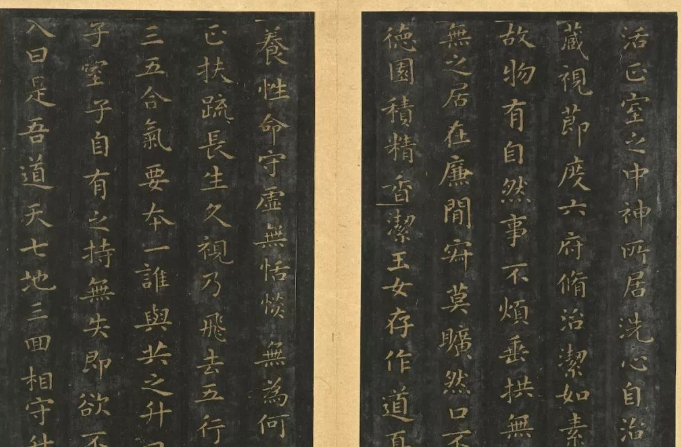 活正室之中神所居洗心自治
藏視節度六府脩治潔如素
故物有自然事不煩垂拱無
無之居在廉間寂莫曠然口不
德園積精香潔玉女存作道真
養性命守虛無恬惔無為何
正扶疏長生久視乃飛去五行
三五合氣要本一誰與共之升
子室子自有之持無失即欲不
入曰是吾道天七地三回相守升